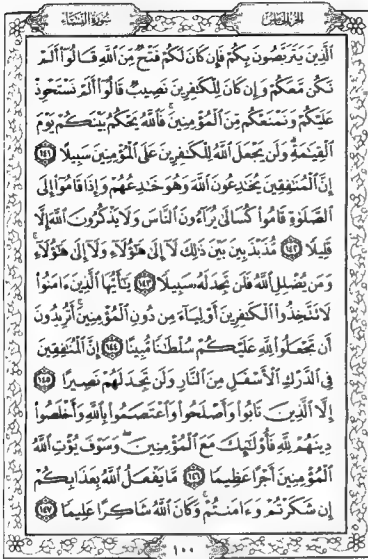 الجزء الخامس
سورة النساء
الَّذِينَ يَتَرَبَّصُونَ بِكُمْ فَإِن كَانَ لَكُمْ فَتْحٌ مِّنَ اللَّهِ قَالُوا أَلَمْ
نَكُن مَّعَكُمْ وَإِن كَانَ لِلْكَافِرِينَ نَصِيبٌ قَالُوا أَلَمْ نَسْتَحْوِذْ
عَلَيْكُمْ وَنَمْنَعْكُم مِّنَ الْمُؤْمِنِينَ ۚ فَاللَّهُ يَحْكُمُ بَيْنَكُمْ يَوْمَ
الْقِيَامَةِ وَلَن يَجْعَلَ اللَّهُ لِلْكَافِرِينَ عَلَى الْمُؤْمِنِينَ سَبِيلًا ١٤١
إِنَّ الْمُنَافِقِينَ يُخَادِعُونَ اللَّهَ وَهُوَ خَادِعُهُمْ وَإِذَا قَامُوا إِلَى
الصَّلَاةِ قَامُوا كُسَالَىٰ يُرَاءُونَ النَّاسَ وَلَا يَذْكُرُونَ اللَّهَ إِلَّا
قَلِيلًا ١٤٢ مُّذَبْذَبِينَ بَيْنَ ذَٰلِكَ لَا إِلَىٰ هَٰؤُلَاءِ وَلَا إِلَىٰ هَٰؤُلَاءِ ۚ
وَمَن يُضْلِلِ اللَّهُ فَلَن تَجِدَ لَهُ سَبِيلًا ١٤٣ يَا أَيُّهَا الَّذِينَ آمَنُوا
لَا تَتَّخِذُوا الْكَافِرِينَ أَوْلِيَاءَ مِن دُونِ الْمُؤْمِنِينَ ۚ أَتُرِيدُونَ
أَن تَجْعَلُوا لِلَّهِ عَلَيْكُمْ سُلْطَانًا مُّبِينًا ١٤٤ إِنَّ الْمُنَافِقِينَ
فِي الدَّرْكِ الْأَسْفَلِ مِنَ النَّارِ وَلَن تَجِدَ لَهُمْ نَصِيرًا ١٤٥
إِلَّا الَّذِينَ تَابُوا وَأَصْلَحُوا وَاعْتَصَمُوا بِاللَّهِ وَأَخْلَصُوا
دِينَهُمْ لِلَّهِ فَأُولَٰئِكَ مَعَ الْمُؤْمِنِينَ ۖ وَسَوْفَ يُؤْتِ اللَّهُ
الْمُؤْمِنِينَ أَجْرًا عَظِيمًا ١٤٦ مَّا يَفْعَلُ اللَّهُ بِعَذَابِكُمْ
إِن شَكَرْتُمْ وَآمَنتُمْ ۚ وَكَانَ اللَّهُ شَاكِرًا عَلِيمًا ١٤٧
١٠٠